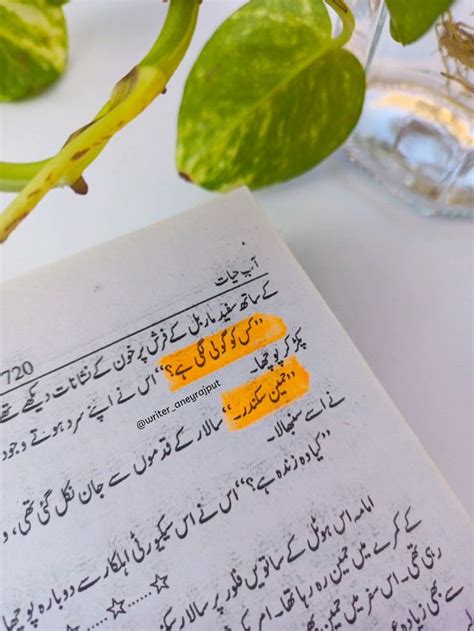 آبِ حیات
720
کے ساتھ سفید ماربل کے فرش پر خون کے نشانات دیکھے تھے
”کس کو گولی لگی ہے؟“ اس نے اپنے سرد ہوتے وجود
پکڑ کر پوچھا۔
”حمین سکندر۔“ سالار کے قدموں سے جان نکل گئی تھی،
@writer_aneyrajput
نے اسے سنبھالا۔
”کیا وہ زندہ ہے؟“ اس نے اس سیکیورٹی اہلکار سے دوبارہ پوچھا
☆.....☆.....☆
امامہ اس ہوٹل کے ساتویں فلور پر سالار
کے کمرے میں حمین رہ رہا تھا۔
رہی تھی۔ اس سفر میں حمین
سے بھی بعد